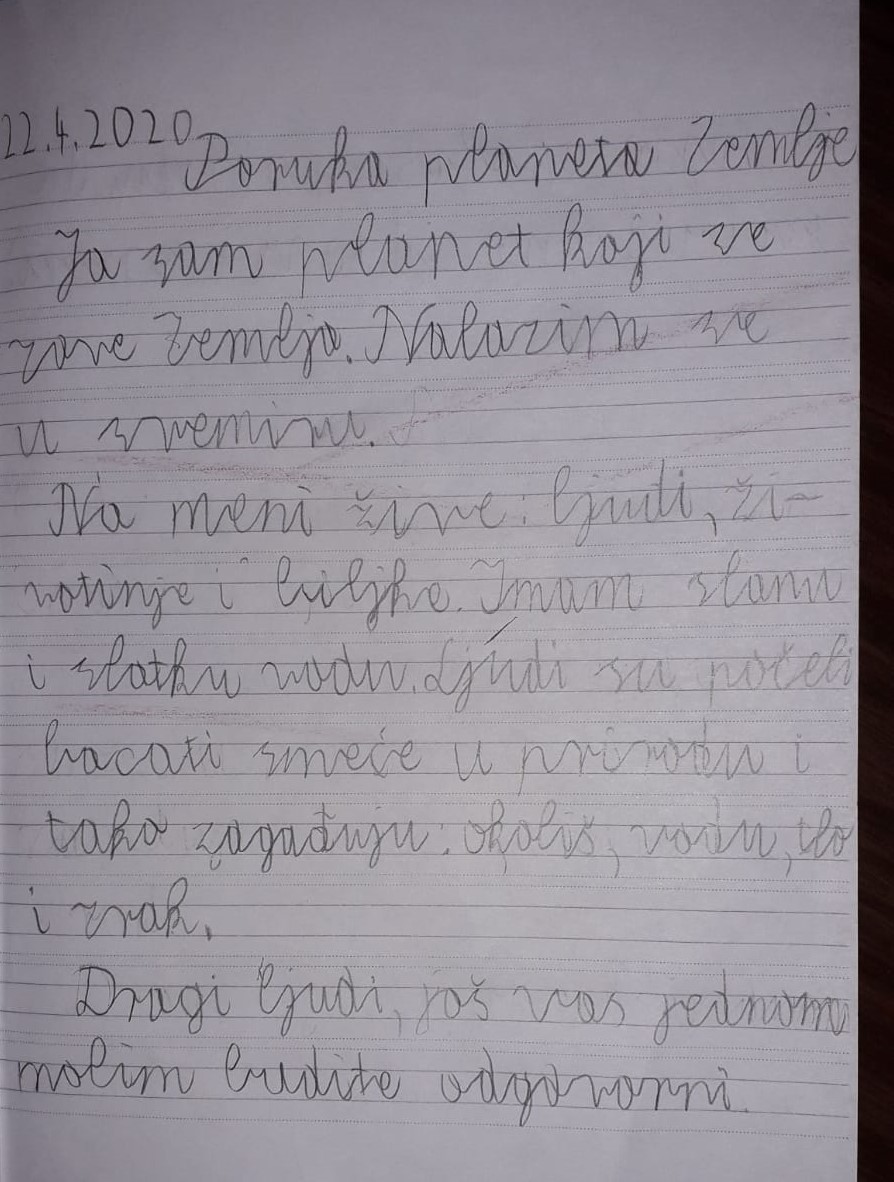 22.4.2020.
Poruka planeta Zemlje
Ja sam planet koji se
zove Zemlja. Nalazim se
u svemiru.
Na meni žive: ljudi, ži-
votinje i biljke. Imam slanu
i slatku vodu. Ljudi su počeli
bacati smeće u prirodu i
tako zagađuju: okoliš, vodu, tlo
i zrak.
Dragi ljudi, još vas jednom
molim budite odgovorni.